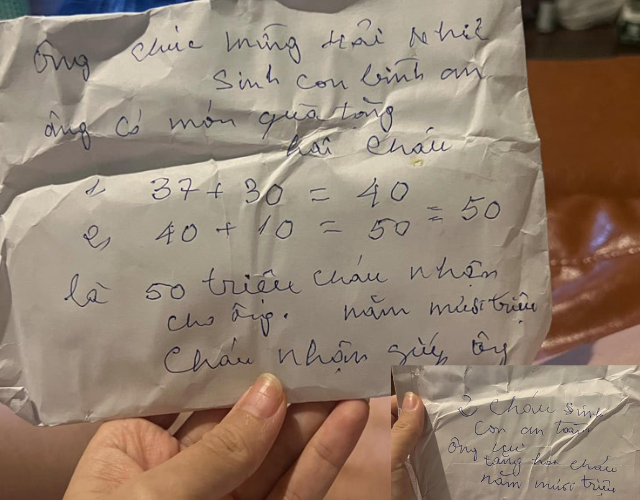 Ông chúc mừng Hải Nhi
Sinh con bình an
ông có món quà tặng
hai cháu
1, 37 + 30 = 40
2, 40 + 10 = 50 = 50
là 50 triệu cháu nhận
cho ông. năm mươi triệu
Cháu nhận giúp ông
2 cháu sinh
con an toàn
ông
tặng hai cháu
năm mươi triệu